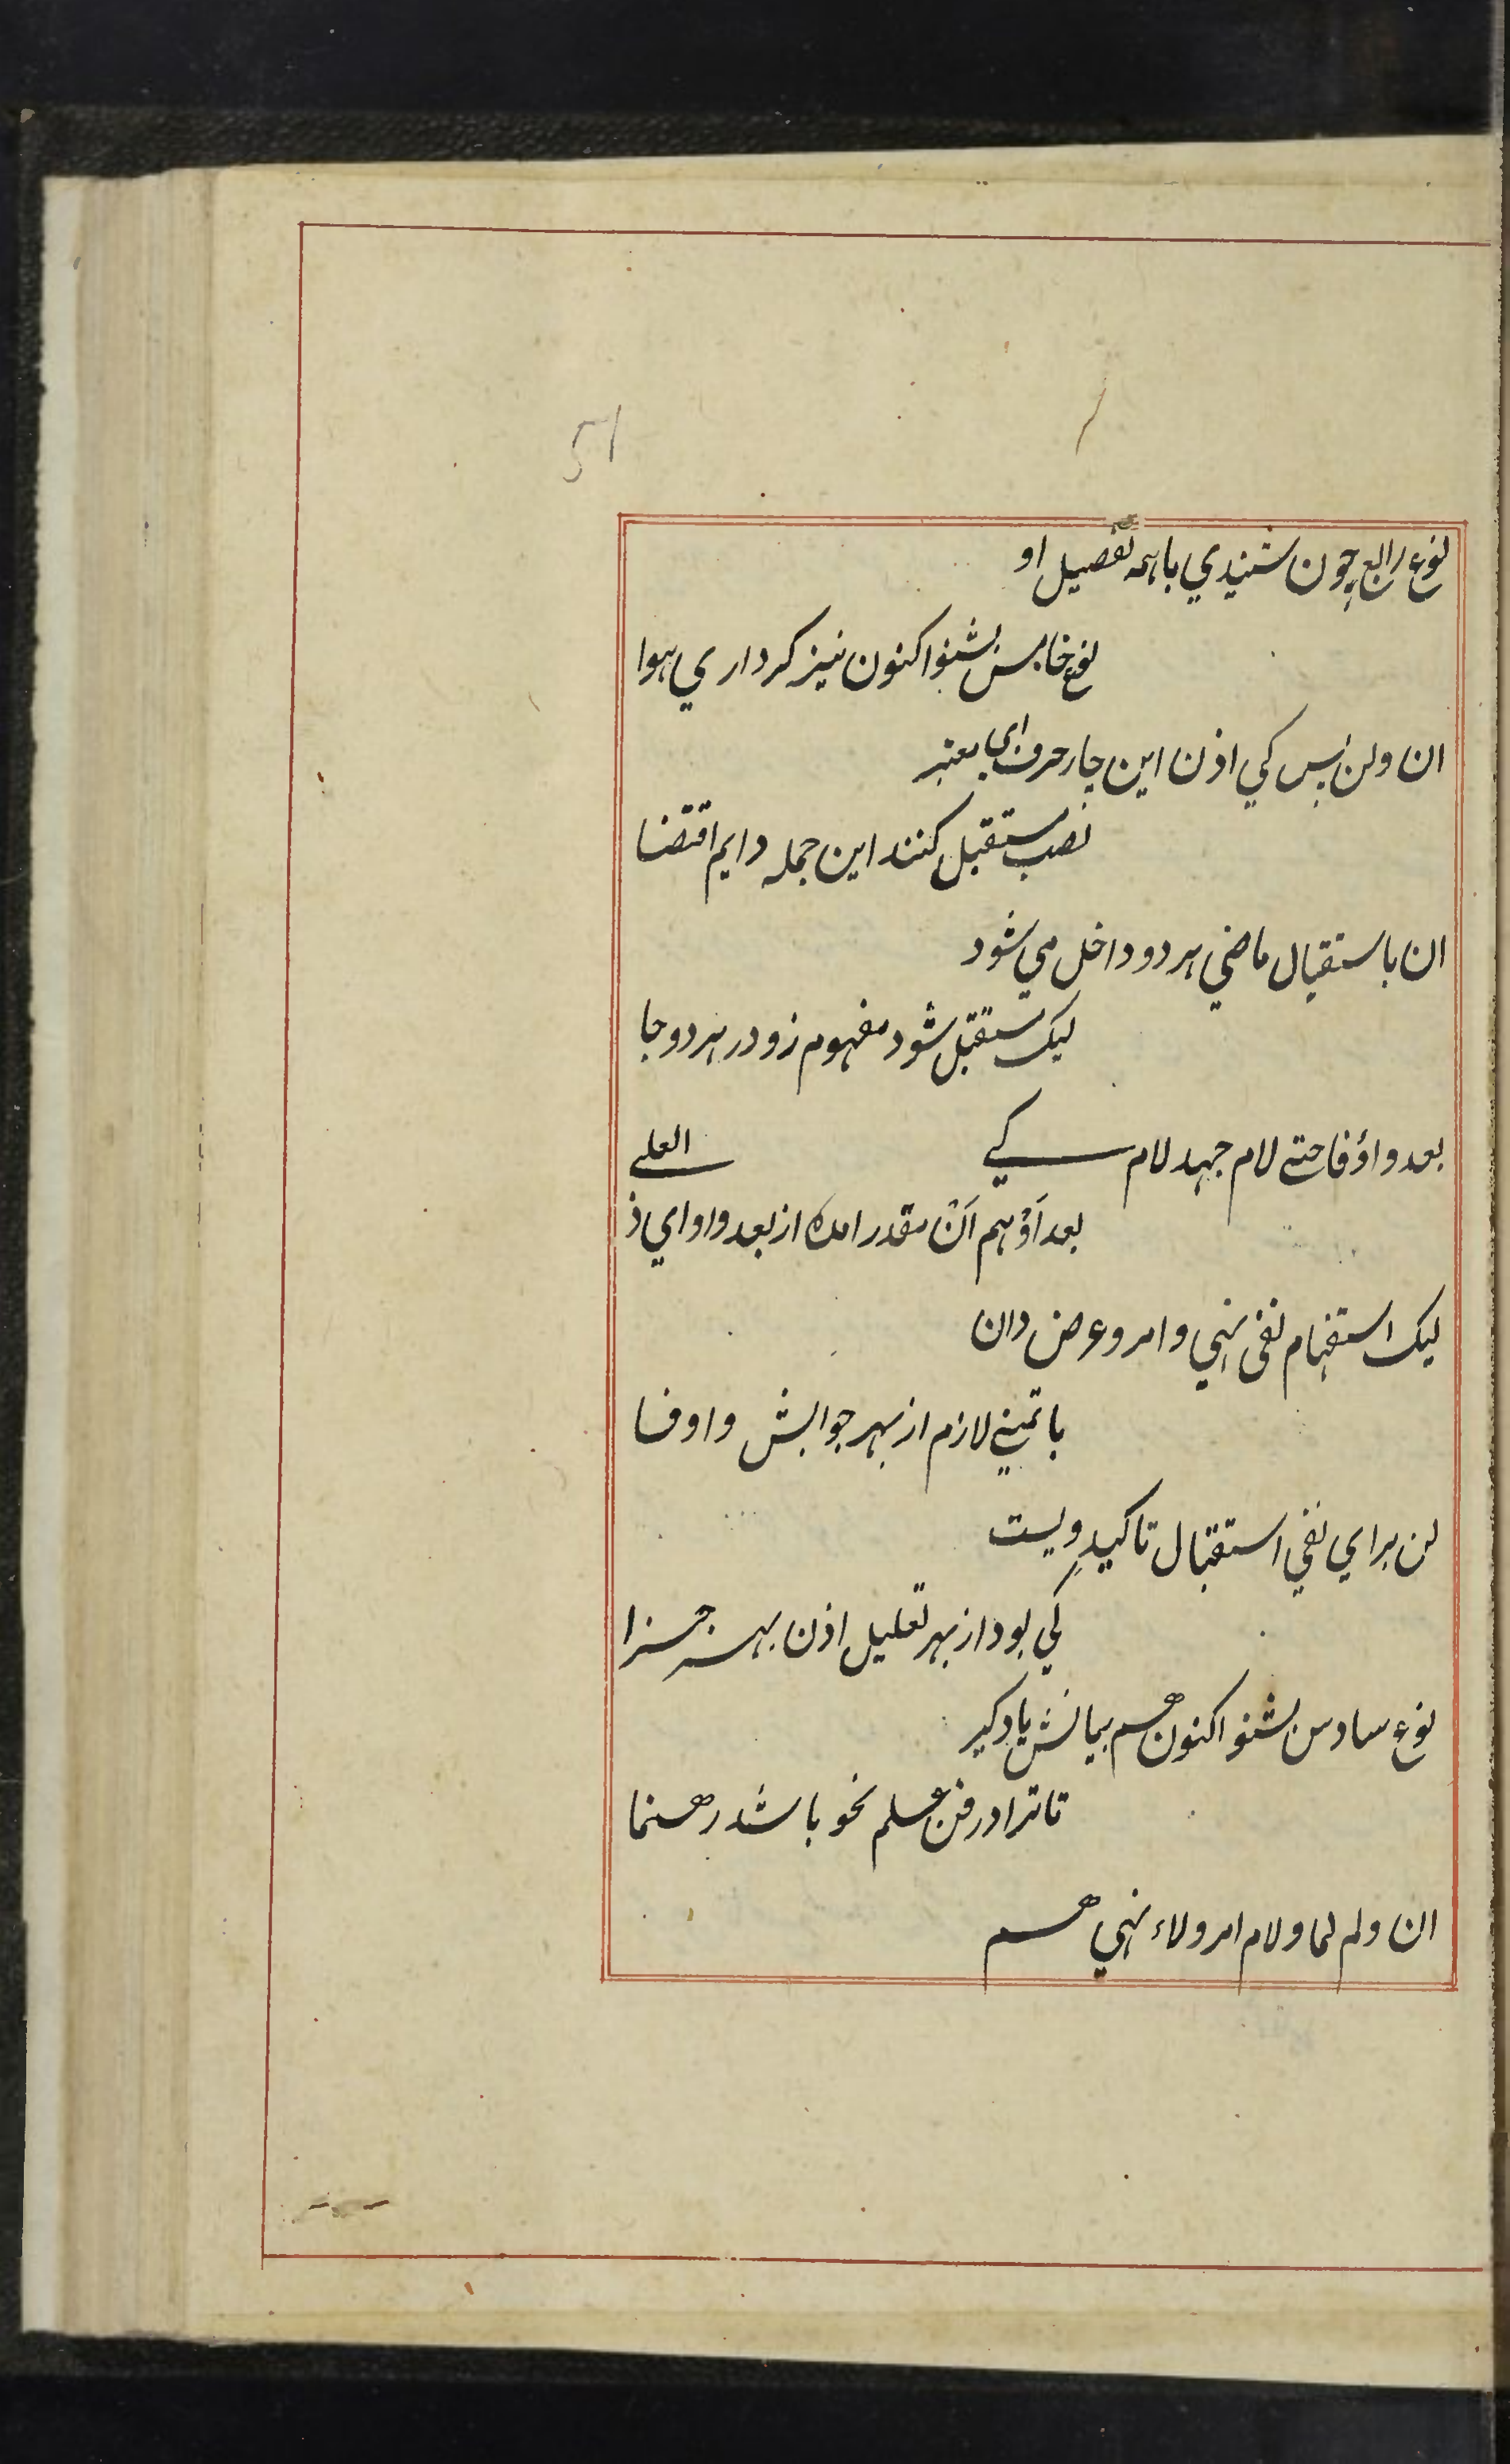 51
نوع رابع چون شنیدي باهمه تفصیل او
نوع خامس بشنو اکنون نیز کر داري هوا
ان ولن پس کي اذن این چار حرف اي معتبر
نصب مستقبل کنند این جمله دایم اقتضا
ان باستقبال ماضي هر دو داخل مي شود
لیک مستقبل شود مفهوم زو در هر دو جا
بعد واو فا حتے لام جهد لام کي
العلے
بعد اَوْ هم اَنْ مقدر امده از بعد واو اي ذ
لیک استفهام نفی نهي و امر و عرض دان
با تمنے لازم از بهر جوابش واو فا
لن براي نفي استقبال تاکیدِ ویست
کي بود از بهر تعلیل اذن بهر جزا
نوع سادس بشنو اکنون هم بیانش یاد کیر
تا ترا در فن علم نحو باشد رهنما
ان ولم لما ولام امر ولاء نهي هم